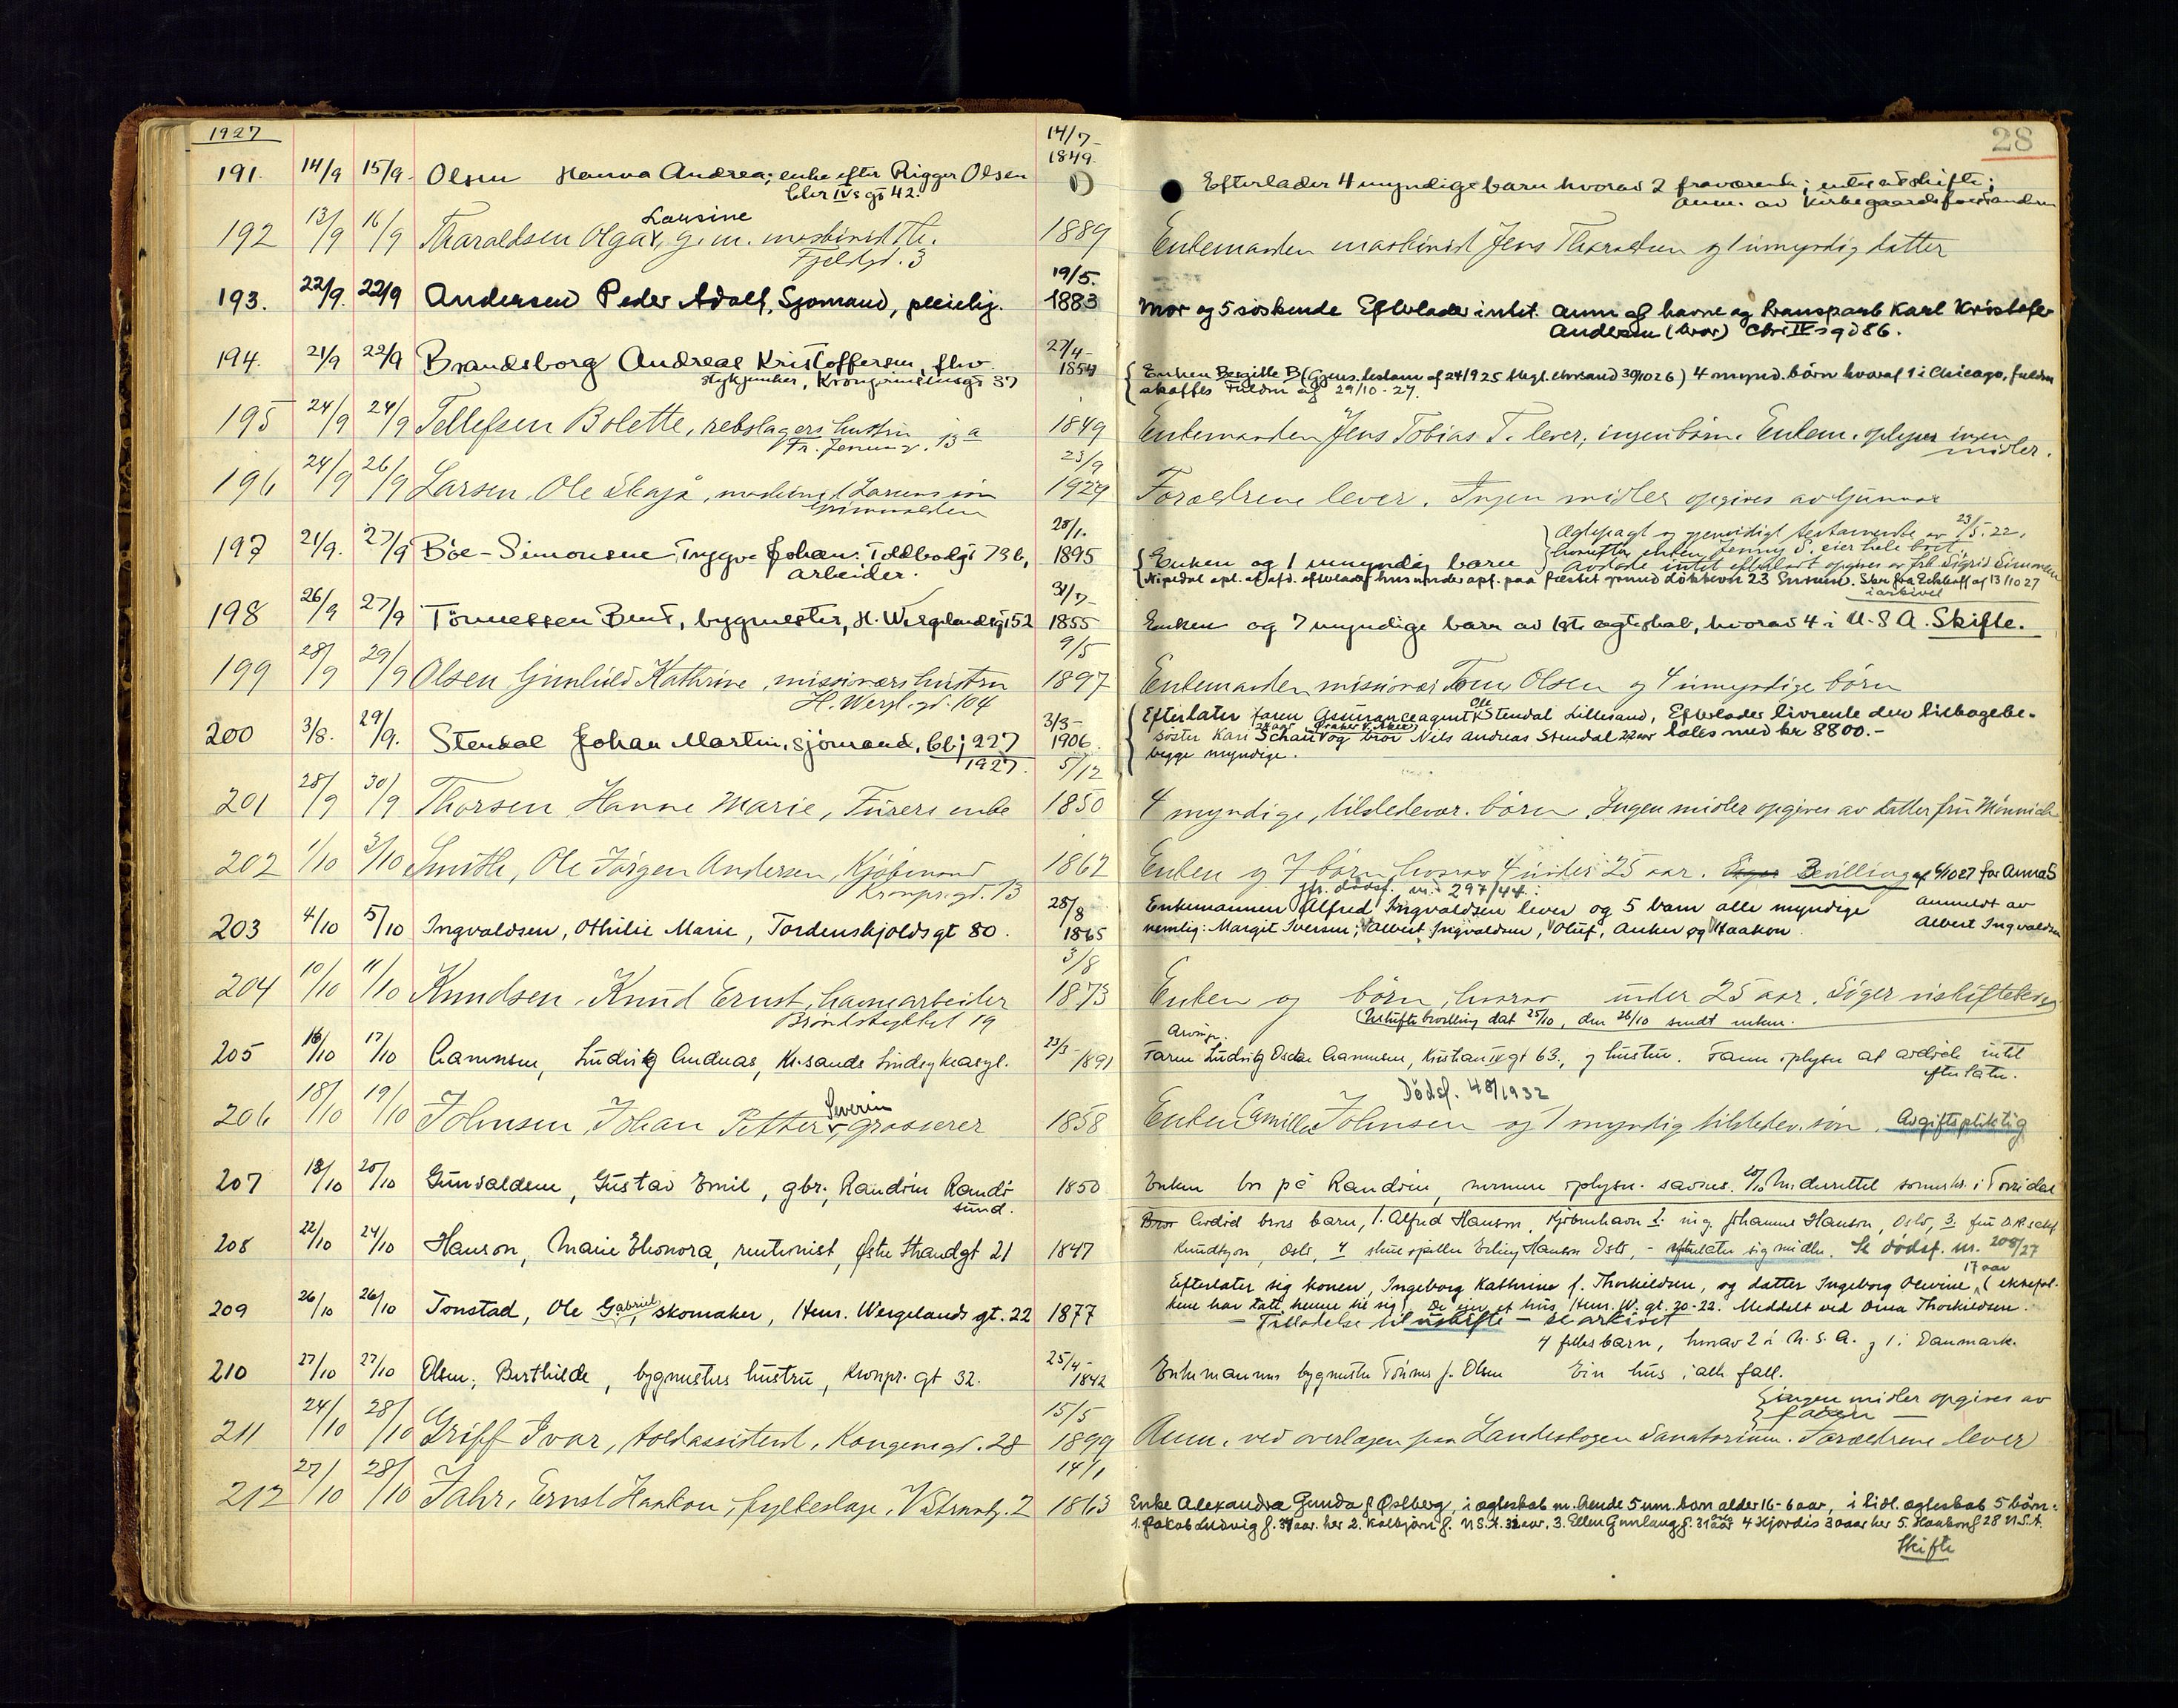 1927
28
191. 14/9 15/9- Olsen Hanna Andrea; enke efter Rigger Olsen 14/7- 1849.
Chr IVs gt 42.
Efterlader 4 myndige barn hvorav 2 fraværende; intet at skifte;
anm. av Kirkegaardsforstanderen
192 13/9 16/9 Tharaldsen Olga Lausine, g. m. maskinist Th. 1889
Fjeldgt. 3
Enkemanden maskinist Jens Tharaldsen og 1 umyndig datter
193. 22/9. 22/9 Andersen Peder Adolf, Sjømand, pleielig. 19/5. 1883
Mor og 5 søskende Efterlader intet. anm af havne og transparb Karl Kristofer
Andersen (bror) Chr. IVs gd 86.
194. 21/9 22/9 Brandsborg Andreas Kristoffersen, fhv. 27/4- 1854
stykjunker, Kronprinsensgt 37
Enken Bergitte B (Gjens. testam af 24/9 25 tingl. Chrsand 30/10 26) 4 mynd. börn hvoraf 1 i Chicago, fuldm
skaffes Fuldm af 29/10-27.
195 24/9 24/9 Tellefsen Bolette, rebslagers hustru 1849
Fr. Jensensg. 13 a
Enkemanden Jens Tobias T. lever, ingen børn. Enkem. oplyser ingen
midler.
196 24/9 26/9 Larsen, Ole Skajå, maskinist Larsens søn 23/9 1924
Grimsdalen
Forældrene lever. Ingen midler opgives av Gunnar
197 21/9. 27/9 Böe-Simonsen Trygve Johan. Toldbodgt 73 b, 28/1. 1895
arbeider.
Enken og 1 umyndig barn
Ægtepagt og gjensidigt testamente av 23/5-22,
hvorefter enken Jenny S. eier hele boet.
Avdøde intet efterladt opgives av frk Sigrid Simonsen
Nipedal opl. at afd. efterlader hus under opf. paa fæstet grund Løkkevn 23 Grimm. Skr fra Eckhoff af 13/10 27
i arkivet
198 26/9 27/9 Tönnessen Bent, bygmester, H. Wergelandsgt 52 31/7- 1855
Enken og 7 myndige barn av 1ste ægteskab, hvorav 4 i U.S A. Skifte.
199 28/9 29/9 Olsen Gunhild Kathrine, missionærs hustru 9/5 1897
H. Wergl. gt. 104
Enkemanden missionær Tom Olsen og 4 umyndige børn
200 3/8. 29/9. Stendal Johan Martin, sjömand, bl j 227 1927. 3/3- 1906
Efterlater faren Assuranceagent Ole Stendal Lillesand, Efterlader livrente der tilbagebe-
søster Kari Schau og bror Nils Andreas Stendal 22 aar tales med kr 8800.-
begge myndige.
201 28/9 30/9 Thorsen Hanne Marie, Furers enke 5/12 1850
4 myndige, tilstedevær. børn. Ingen midler opgives av datter fru Mönnich
202 1/10 3/10 Smith, Ole Jørgen Andersen, Kjøbmand 1862
Kronpr. gt. 13
Enken og 7 børn, hvorav 4 under 25 aar. Bevilling af 4/10 27 for Anna S
203 4/10 5/10 Ingvaldsen, Othilie Marie, Tordenskjolds gt 80. 28/8 1865
jfr. dödsf. nr. 297/44.
Enkemannen Alfred Ingvaldsen lever og 5 barn alle myndige anmeldt av
nemlig: Margit Iversen; Albert Ingvaldsen, Oluf, Anker og Haakon. Albert Ingvaldsen
204 10/10 11/10 Knudsen, Knud Ernst, havnearbeider 3/8 1873
Brøndstykket 19
Enken og børn, hvorav under 25 aar. Söger uskiftebev.
Uskiftebevilling dat 25/10, den 26/10 sendt enken.
205 16/10 17/10 Aamnsen, Ludvig Andreas, Kr.sands Sindsykeasyl. 23/3- 1891
Arving:
Faren Ludvig Oscar Aamnsen, Kristian IV gt 63, og hustru. Faren oplyser at avdöde intet
efterlater.
206 18/10 19/10 Johnsen, Johan Petter Severin, grosserer 1858
Dödsf. 48/1932
Enken Camilla Johnsen og 1 myndig tilstedev. søn. Avgiftspliktig
207 18/10 20/10 Gunvaldsen, Gustav Emil, gbr., Randöen Randö- 1850
sund.
Enken bor på Randöen, nærmere oplysn. savnes. 20/10 Underrettet sorenskr. i Torridal
208 22/10 24/10 Hanson, Marie Elenora, rentenist, Østre Strandgt 21 1847
Avdöd brors barn, 1. Alfred Hanson, Kjöbenhavn 2. ing. Johannes Hanson, Oslo, 3. fru
Knudtzon, Oslo, 4 skuespiller Erling Hanson Oslo, - efterlater sig midler. Se dödsf. nr. 208/27
209 26/10 26/10 Tonstad, Ole Gabriel, skomaker, Henr. Wergelands gt. 22 1877
Efterlater sig konen, Ingeborg Kathrine f. Thorkildsen, og datter Ingeborg Oevine 17 aar, (ektefol-
kene har tatt henne til sig). De eier et hus Henr. W. gt. 20-22. Meddelt ved Oma Thorkildsen.
- Tilladelse til uskifte - se arkivet
210 27/10 27/10 Olsen, Berthilde, bygmesters hustru, Kronpr. gt 32. 25/4- 1842
4 felles barn, hvorav 2 i U.S.A. og 1 i Danmark.
Enkemannen bygmester Tönnes J. Olsen Eier hus i alle fall.
211 24/10 28/10 Griff Ivar, toldassistent, Kongensgt. 28 15/5 1899
ingen midler opgives av
faderen -
Anm. ved overlægen paa Landeskogen Sanatorium. Forældrene lever
212 27/10 28/10 Fahr, Ernst Haakon, fylkeslæge, V. Strandg. 2 14/1 1863
Enke Alexandra Gunda f Østberg, i ægteskab m. hende 5 um. barn alder 16-6 aar, i tidl. ægteskab 5 börn:
1. Jakob Ludvig f. 34 aar. her 2. Kolbjörn f. U S.A. 32 aar, 3. Ellen Gunlaug f. 31 aar 4 Hjordis 30 aar her 5. Haakon f 28 U.S.A.
Skifte